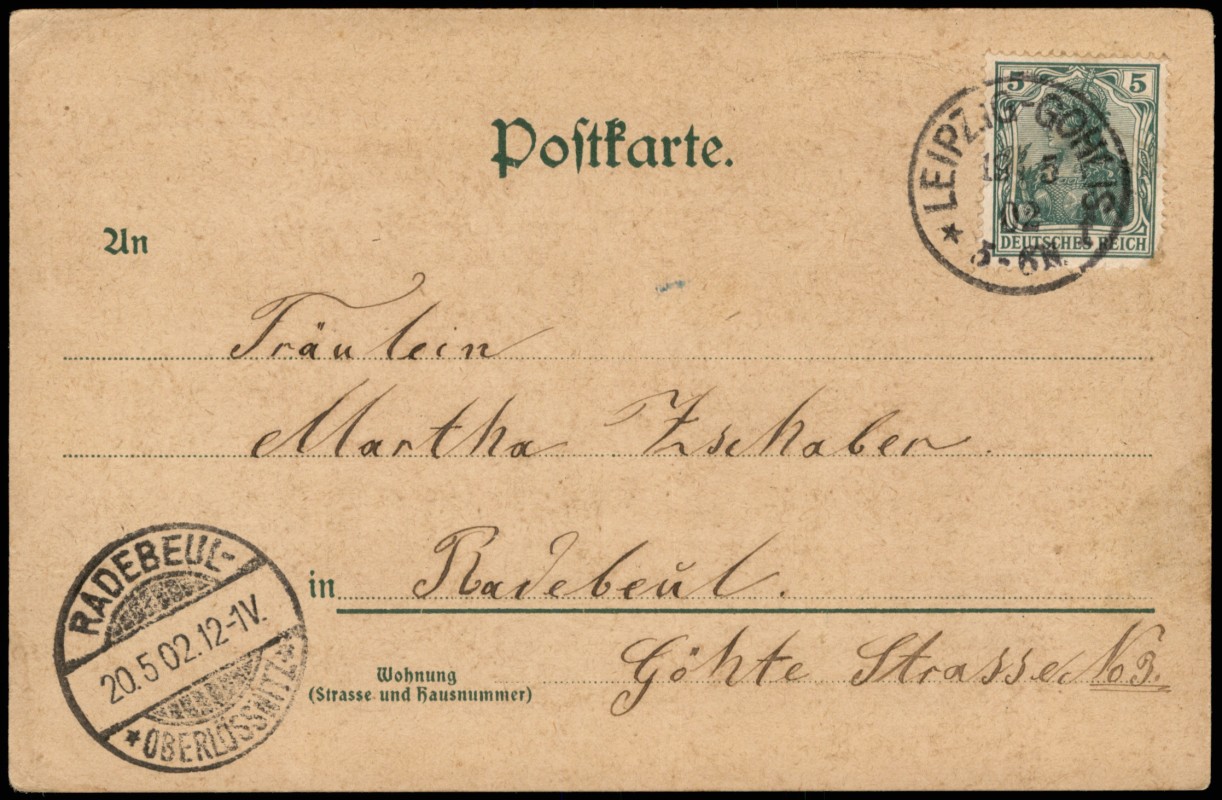 Postkarte.
5 5
DEUTSCHES REICH
LEIPZIG-GOHLIS
19 5
02
5-6N.
An
Fräulein
Martha Zschaber.
in Radebeul.
Wohnung
(Strasse und Hausnummer)
Göhte Strasse No 3.
RADEBEUL-
20.5 02.12-1V.
OBERLÖSSNITZ